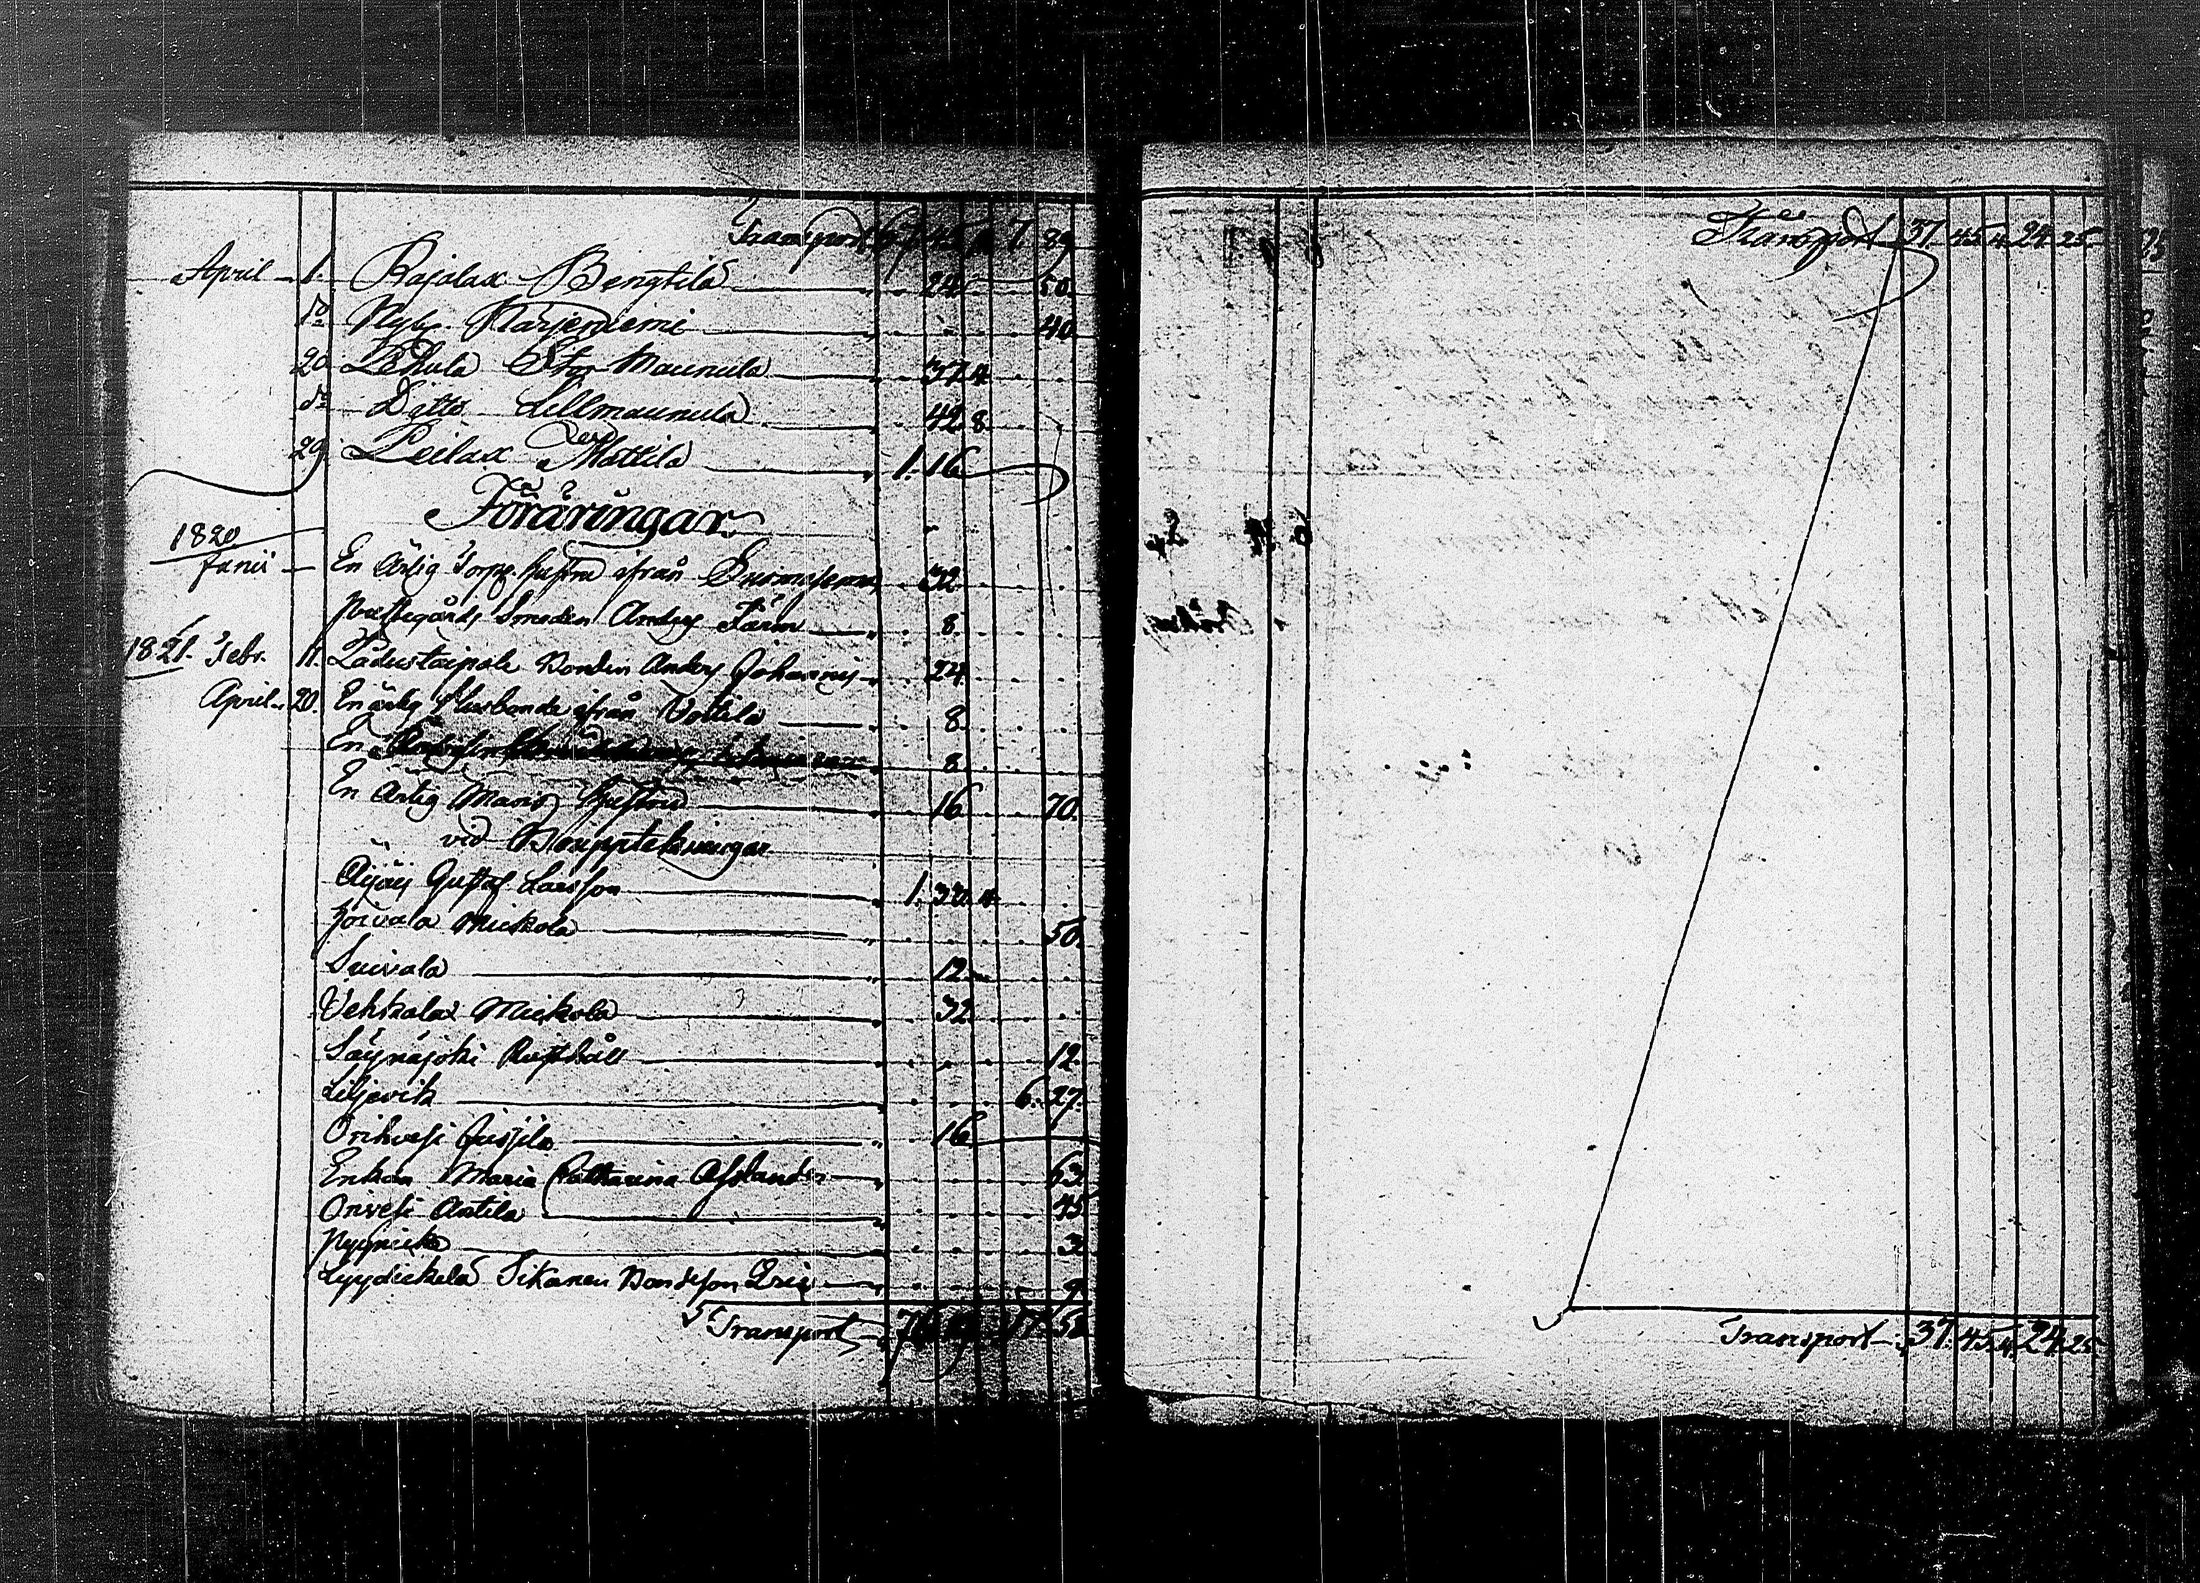 Transport 7 89
April 1. Rajalax Bengtila 24 50.
do Nyby Karjeniemi 40.
20 Lehula Stor Maunula 37 4
do Ditto Lillmaunula 42 8
29 Peilax Mattila 1. 16
Föräringar
1820
Junii En Ärlig Torp. Hustru ifrån 32
Prestegårds Smeden Anders Färm 8.
1821. Febr. 11. Ladustaipale Bonden Anders Johannis 24
April 20. En ärlig Husbonde ifrån Voitila 8
En 8
En Ärlig Mans Hustru 16 70.
vid Boupptekningar
Äijäis Gustaf Larsson 1. 33. 4
Joivala Mickola 50.
Suivala 12
Vehkalax Mickola 32
Säynäjoki Rusthåll 12.
Liljevik 6. 27.
Orihvesi Jussila 16
Enkan Maria Catharina 63
Orivesi Antila 45
3
Lyydickelä Sikanen Bondeson Eric 9
Transport 76 17 58
Transport 37. 45. 4. 24. 25.
Transport 37. 45. 4. 24. 25.